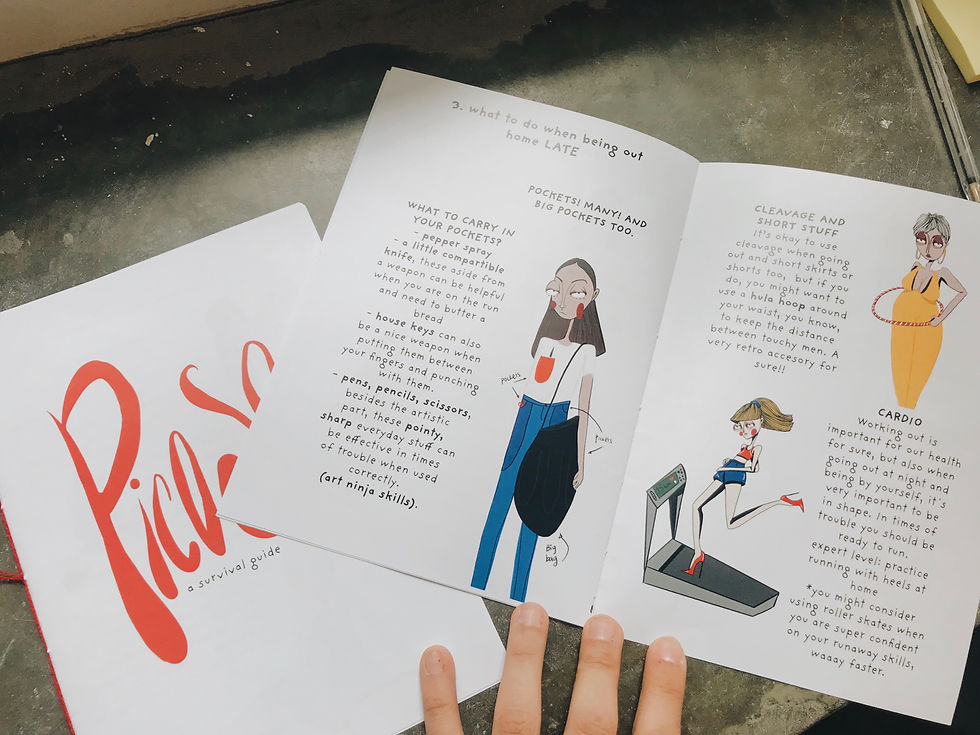 3. what to do when being out
home LATE
WHAT TO CARRY IN
YOUR POCKETS?
- pepper spray
- a little compartible
knife, these aside from
a weapon can be helpful
when you are on the run
and need to butter a
bread
- house keys can also
be a nice weapon when
putting them between
your fingers and punching
with them.
- pens, pencils, scissors,
besides the artistic
part, these pointy,
sharp everyday stuff can
be effective in times
of trouble when used
correctly.
(art ninja skills).
POCKETS! MANY! AND
BIG POCKETS TOO.
pockets
pockets
Big
bag
CLEAVAGE AND
SHORT STUFF
It's okay to use
cleavage when going
out and short skirts or
shorts too, but if you
do, you might want to
use a hula hoop around
your waist, you know,
to keep the distance
between touchy men. A
very retro accesory for
sure!!
CARDIO
Working out is
important for our health
for sure, but also when
going out at night and
being by yourself, it's
very important to be
in shape. In times of
trouble you should be
ready to run.
expert level: practice
running with heels at
home
*you might consider
using roller skates when
you are super confident
on your runaway skills,
waaay faster.
a survival guide